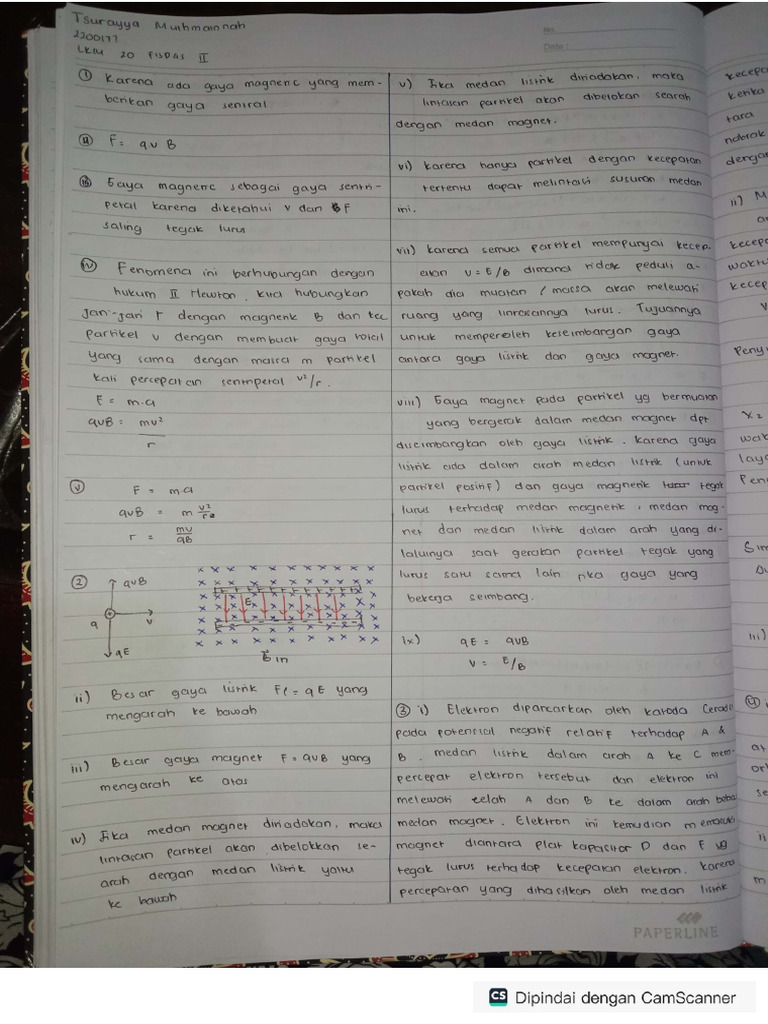 Tsurayya Muthmainnah
2200177
LKM 20 FISDAS II
No.
Date :
① Karena ada gaya magnetic yang mem-
berikan gaya sentral
ii F = qvB
iii Gaya magnetic sebagai gaya sentri-
petal karena diketahui v dan F
saling tegak lurus
iv Fenomena ini berhubungan dengan
hukum II Newton, kita hubungkan
jari-jari r dengan magnetik B dan kec
partikel v dengan membuat gaya total
yang sama dengan massa m partikel
kali percepatan sentripetal v²/r.
F = m.a
qvB = mv²
r
v F = m.a
qvB = m v²/r
r = mv/qB
② qvB
q v
qE
E
B in
ii) Besar gaya listrik Fl = qE yang
mengarah ke bawah
iii) Besar gaya magnet F = qvB yang
mengarah ke atas
iv) Jika medan magnet ditiadakan, maka
lintasan partikel akan dibelokkan se-
arah dengan medan listrik yaitu
ke bawah
v) Jika medan listrik ditiadakan, maka
lintasan partikel akan dibelokan searah
dengan medan magnet.
vi) karena hanya partikel dengan kecepatan
tertentu dapat melintasi susunan medan
ini.
vii) karena semua partikel mempunyai kecep.
atan v = E/B dimana tidak peduli a-
pakah dia muatan / massa akan melewati
ruang yang lintasannya lurus. Tujuannya
untuk memperoleh keseimbangan gaya
antara gaya listrik dan gaya magnet.
viii) Gaya magnet pada partikel yg bermuatan
yang bergerak dalam medan magnet dpt
diseimbangkan oleh gaya listrik. karena gaya
listrik ada dalam arah medan listrik (untuk
partikel positif) dan gaya magnetik tegak
lurus terhadap medan magnetik, medan mag-
net dan medan listrik dalam arah yang di-
laluinya saat gerakan partikel tegak yang
lurus satu sama lain jika gaya yang
bekerja seimbang.
ix) qE = qvB
v = E/B
③ i) Elektron dipancarkan oleh katoda C
pada potensial negatif relatif terhadap A &
B. medan listrik dalam arah A ke C mem-
percepat elektron tersebut dan elektron ini
melewati celah A dan B ke dalam arah
medan magnet. Elektron ini kemudian
magnet diantara plat kapasitor D dan F yg
tegak lurus terhadap kecepatan elektron. karena
percepatan yang dihasilkan oleh medan listrik
ketika
tara
ii) M
kecep
V
Peny
x2
wak
Pen
iii)
at
se
ii
m
PAPERLINE
CS Dipindai dengan CamScanner